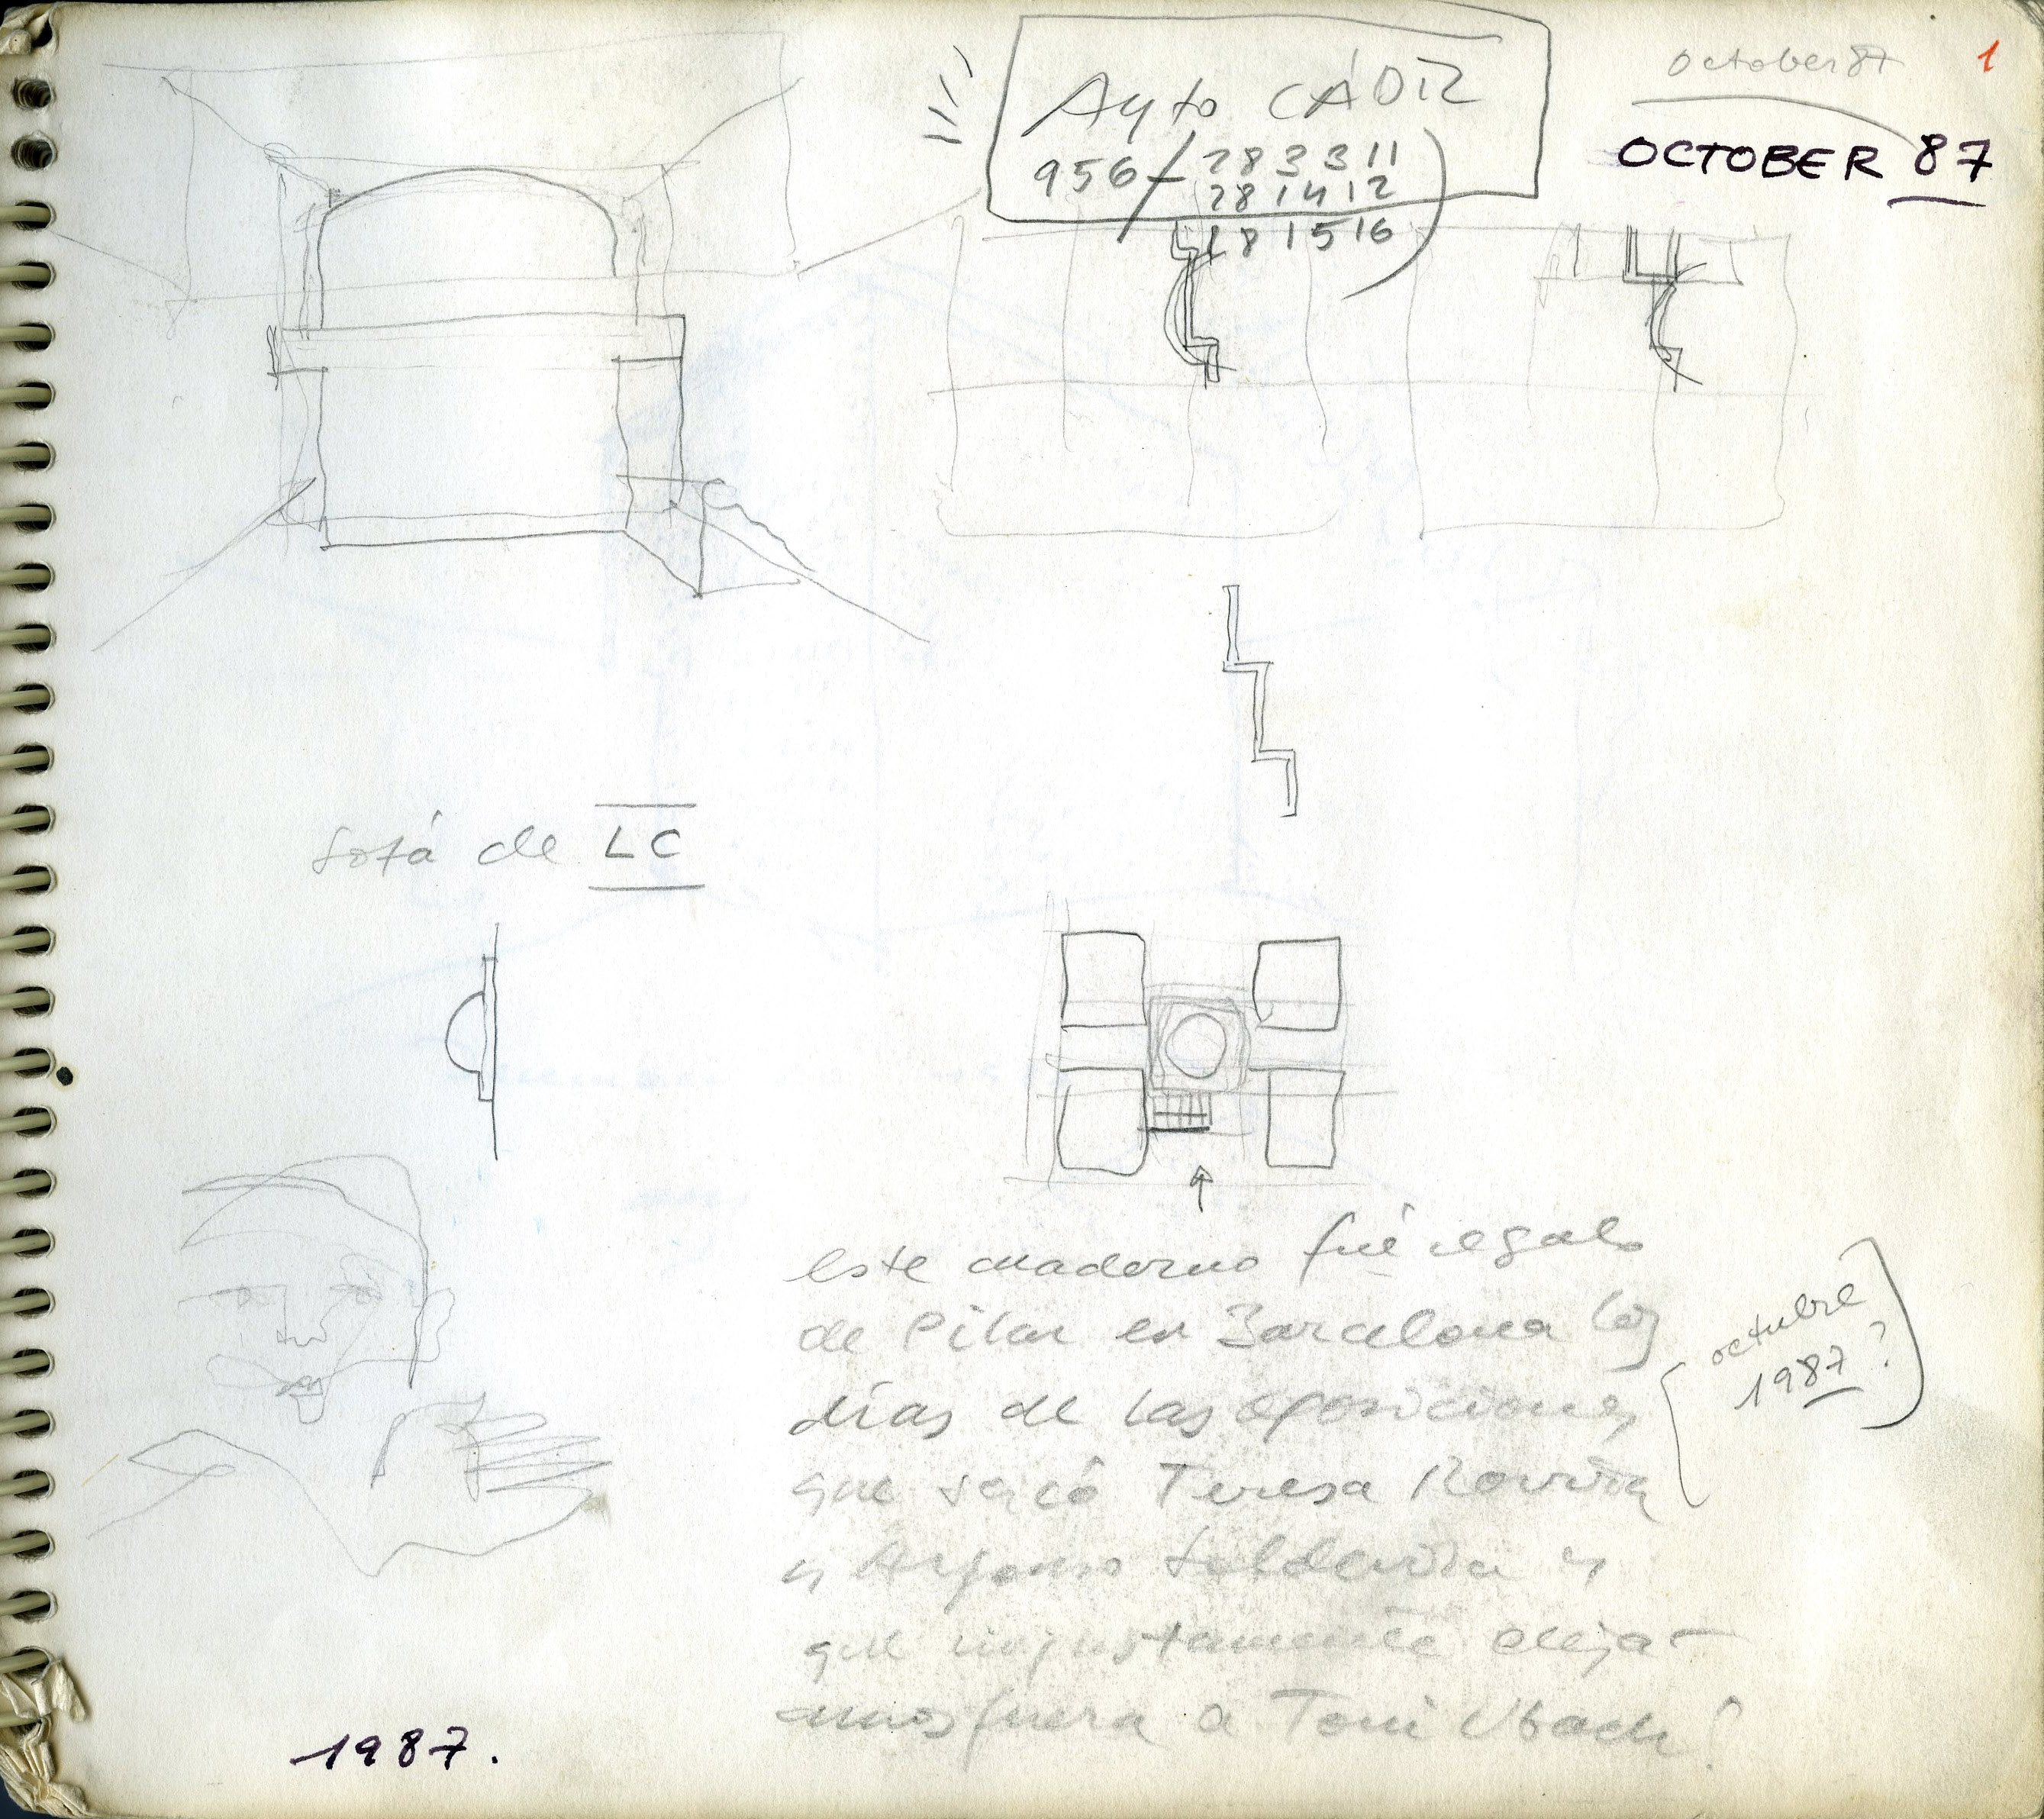 october 87
1
OCTOBER 87
Ayto CÁDIZ
956-283311
281412
281516
sofá de LC
este cuaderno fué regalo
de Pilar en Barcelona los
días de las oposiciones
que sacó Teresa Rovira
y Alfonso Soldevila y
que injustamente deja-
mos fuera a Toni Ubach!
octubre
1987?
1987.